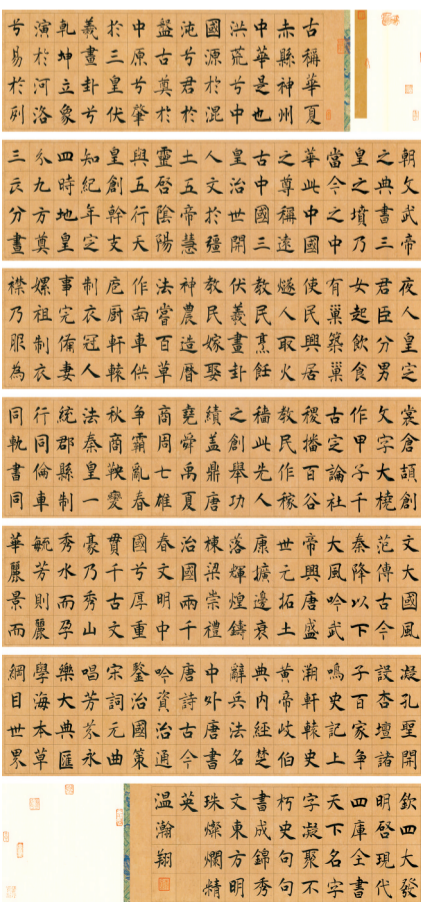 古稱華夏
赤縣神州
中華是也
洪荒兮中
國源於混
沌兮君於
盤古奠於
中原兮肇
於三皇伏
羲畫卦兮
乾坤立象
演於河洛
兮易於列
朝文武帝
之典書三
皇之墳乃
當今之中
華此中國
之尊稱遠
古中國三
皇治世開
人文於疆
土五帝慧
靈啓陰陽
與五行天
皇創幹支
知紀年定
四時地皇
分九方奠
三辰分畫
夜人皇定
君臣分男
女起飲食
有巢築巢
使民興居
燧人取火
教民烹飪
伏羲畫卦
教民嫁娶
神農造曆
法嘗百草
作南車供
庖厨軒棘
制衣冠人
事完備妻
嫘祖制衣
襟乃服為
裳倉頡創
文字大橈
作甲子千
古定論社
稷播百谷
教民作稼
穡此先人
之創舉功
績蓋鼎唐
堯舜禹夏
商周七雄
爭霸亂春
秋商鞅變
法秦皇一
統郡縣制
行同倫車
同軌書同
文大國風
范傳古今
秦降以下
大風吟武
帝興唐盛
世元拓土
康擴邊衰
落輝煌鑄
棟梁崇禮
治國兩千
春文明中
國兮厚重
貫千古文
豪乃秀山
秀水而孕
毓芳則麗
華麗景而
凝孔聖開
杏壇諸
子百家爭
鳴史記上
溯軒轅史
黃帝岐伯
典內經楚
辭兵法名
中外唐書
唐詩古今
吟資治通
鑒治國策
宋詞元曲
唱芳芬永
樂大典匯
學海本草
綱目世界
欽四大發
明啓現代
四庫全書
天下名字
字凝聚不
朽史句句
書成錦秀
文東方明
珠燦爛精
英
溫瀚翔